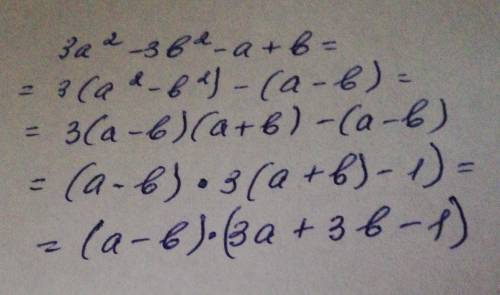 3a² - 3b² - a + b =
= 3(a² - b²) - (a - b) =
= 3(a - b)(a + b) - (a - b)
= (a - b) • 3(a + b) - 1) =
= (a - b)•(3a + 3b - 1)